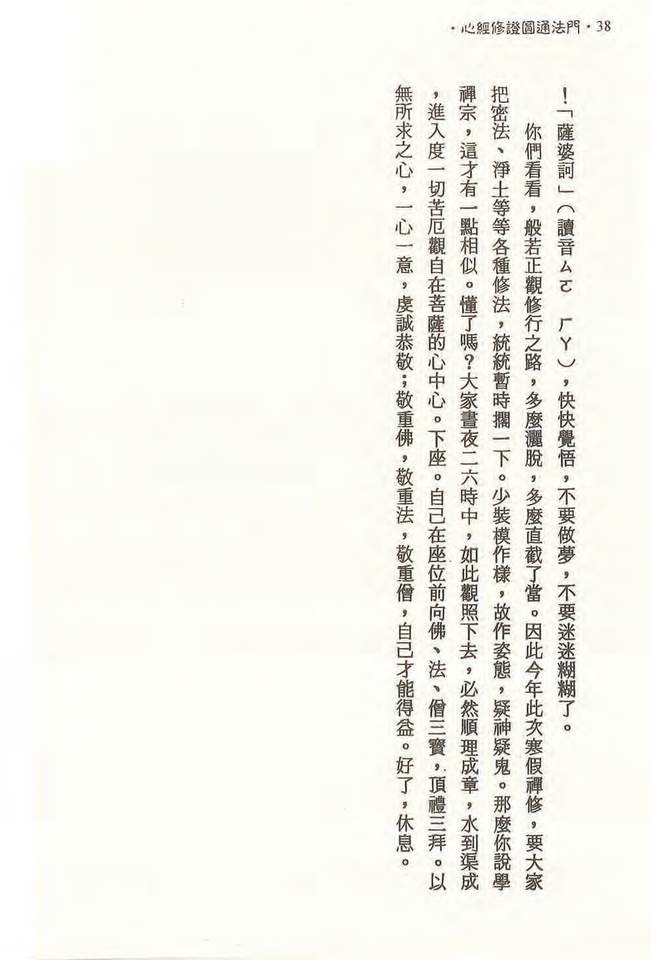 ·心經修證圓通法門·38
！「薩婆訶」（讀音ㄙㄛ　ㄏㄚ），快快覺悟，不要做夢，不要迷迷糊糊了。
你們看看，般若正觀修行之路，多麼灑脫，多麼直截了當。因此今年此次寒假禪修，要大家
把密法、淨土等等各種修法，統統暫時擱一下。少裝模作樣，故作姿態，疑神疑鬼。那麼你說學
禪宗，這才有一點相似。懂了嗎？大家晝夜二六時中，如此觀照下去，必然順理成章，水到渠成
，進入度一切苦厄觀自在菩薩的心中心。下座。自己在座位前向佛、法、僧三寶，頂禮三拜。以
無所求之心，一心一意，虔誠恭敬；敬重佛，敬重法，敬重僧，自己才能得益。好了，休息。